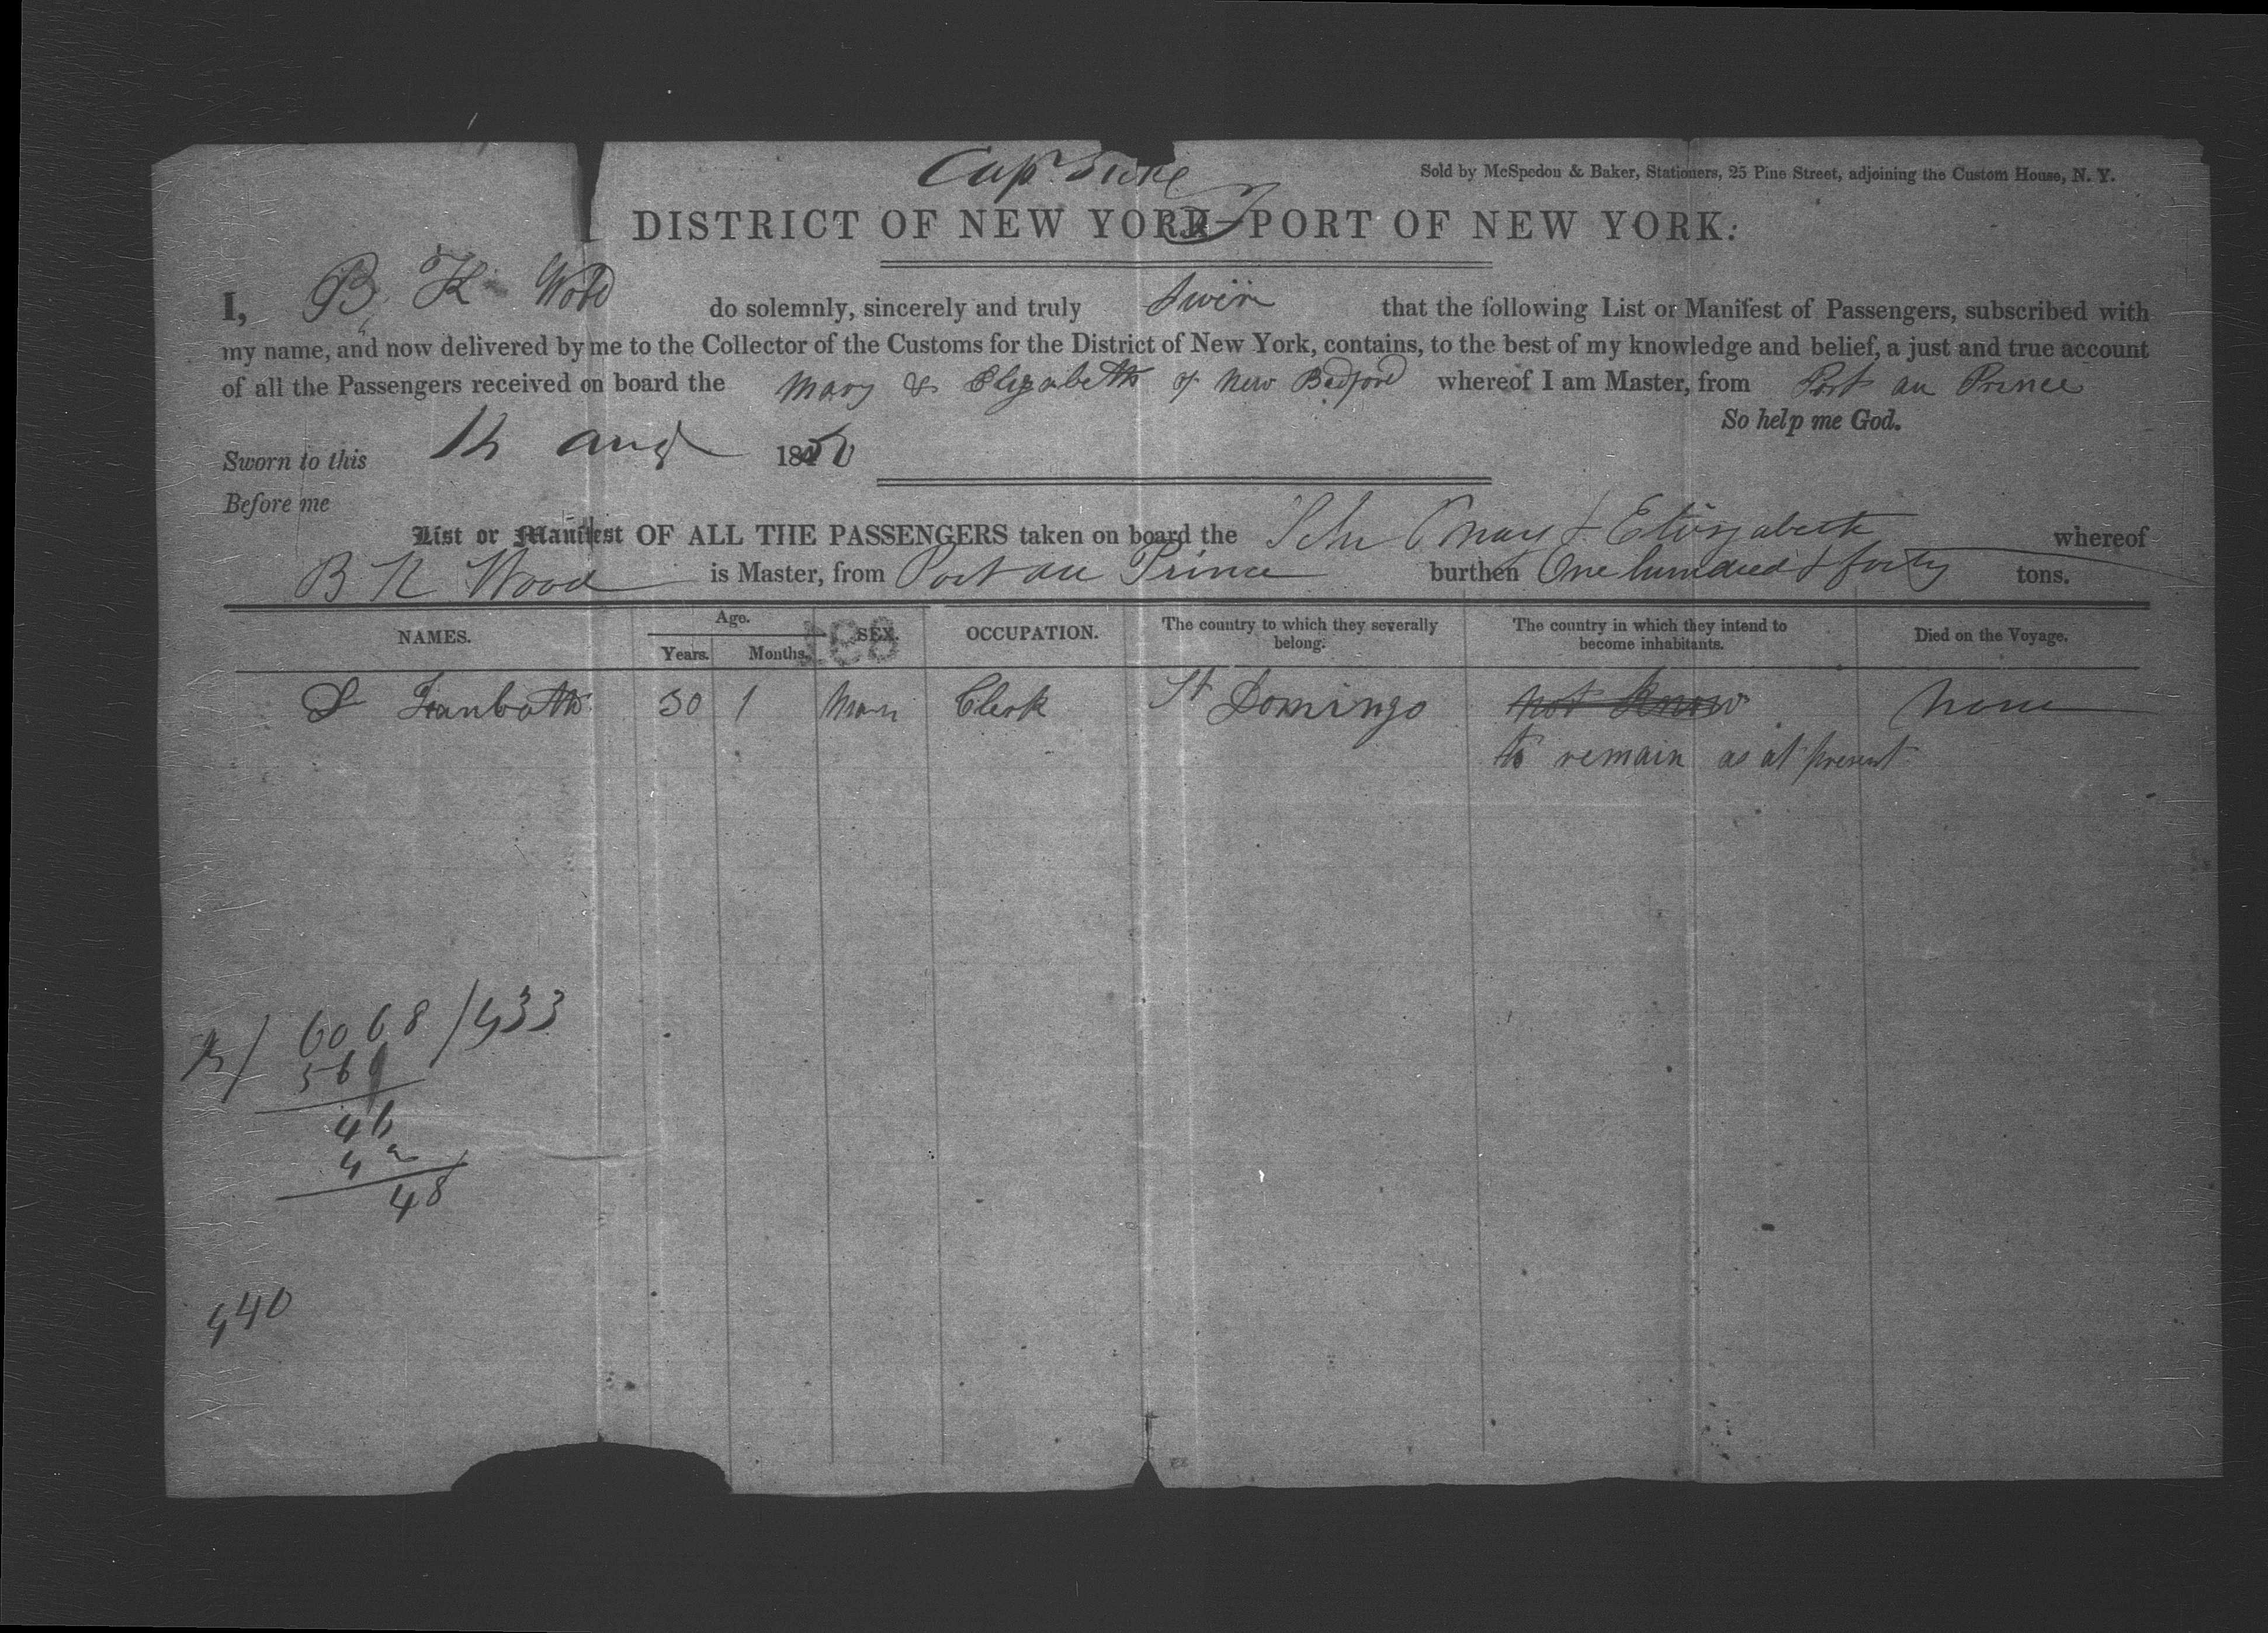 Cap
Sold by McSpedon & Baker, Stationers, 25 Pine Street, adjoining the Custom House, N. Y.
DISTRICT OF NEW YORK—PORT OF NEW YORK:
I, B K Wood do solemnly, sincerely and truly that the following List or Manifest of Passengers, subscribed with
my name, and now delivered by me to the Collector of the Customs for the District of New York, contains, to the best of my knowledge and belief, a just and true account
of all the Passengers received on board the Mary & Elizabeth of New Bedford whereof I am Master, from Port au Prince
So help me God.
Sworn to this aug 1850
Before me
List or Manifest OF ALL THE PASSENGERS taken on board the Schr Mary & Elizabeth whereof
B K Wood is Master, from Port au Prince burthen One hundred & forty tons.
NAMES. Age. Years. Months. SEX. OCCUPATION. The country to which they severally belong. The country in which they intend to become inhabitants. Died on the Voyage.
891
30 1 Man Clerk St Domingo not know None
to remain as at present
6068 / 433
56
46
42
48
440